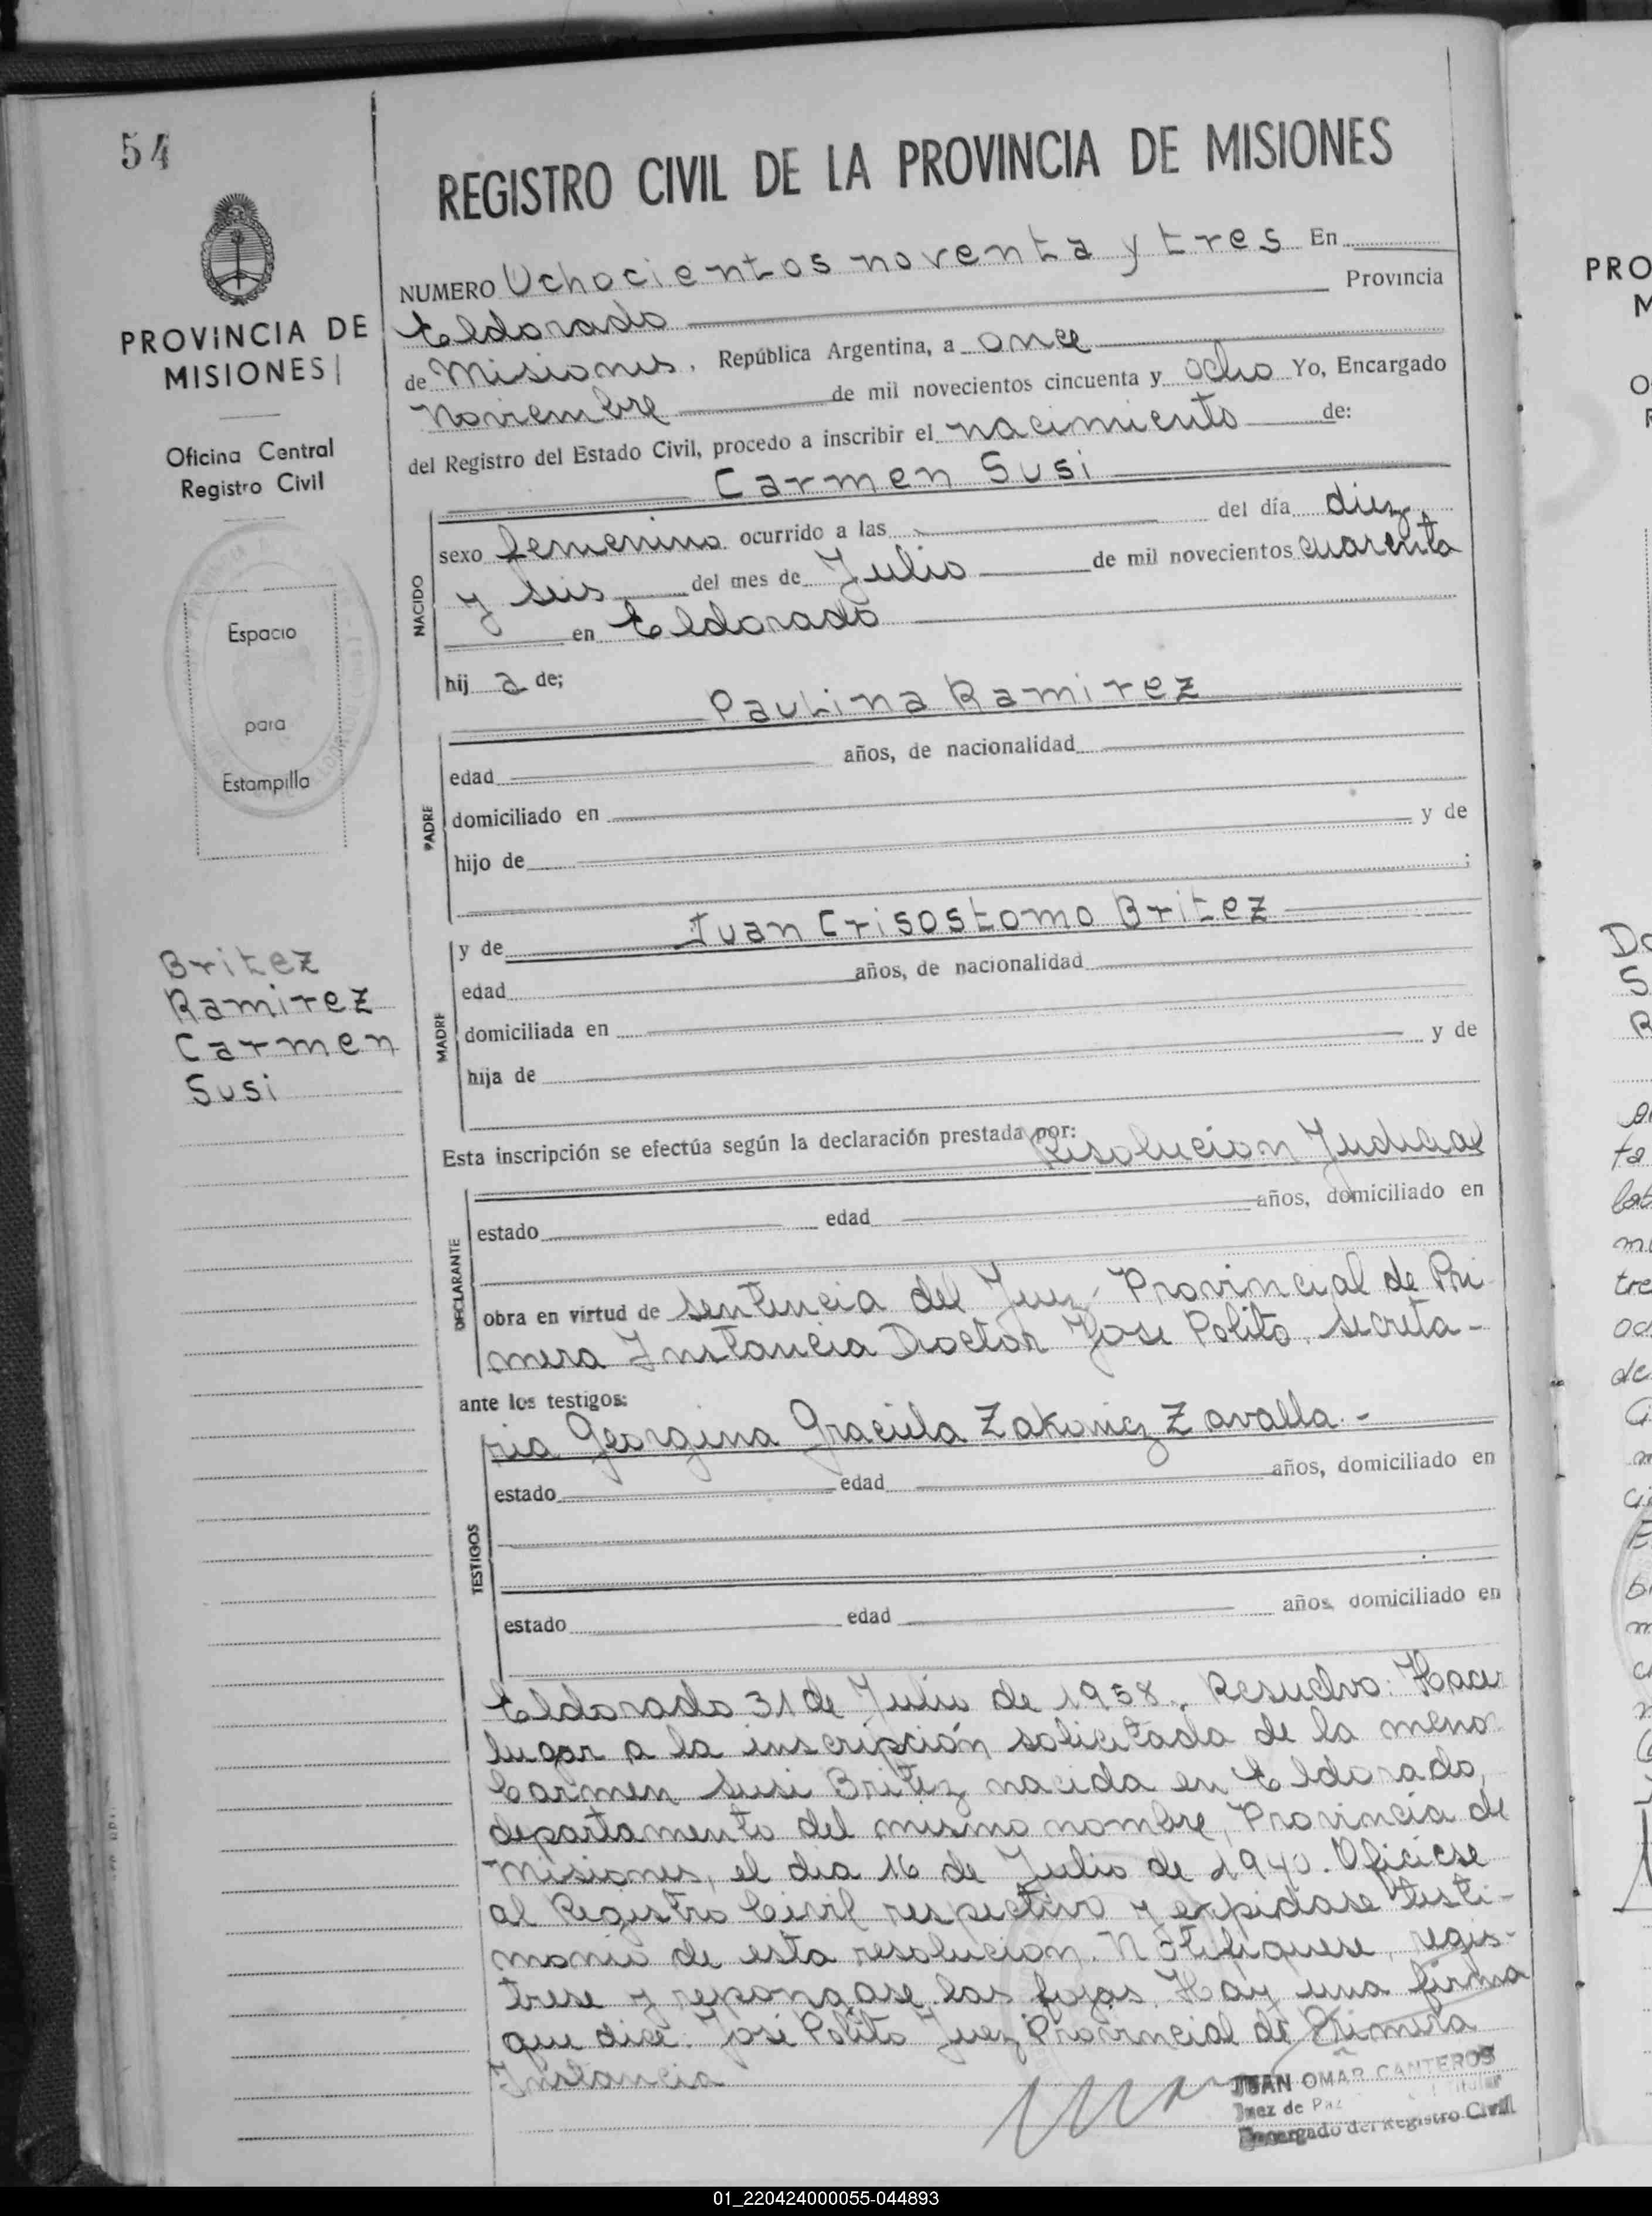 54
REGISTRO CIVIL DE LA PROVINCIA DE MISIONES
PROVINCIA DE
MISIONES
Oficina Central
Registro Civil
Espacio
para
Estampilla
Britez
Ramirez
Carmen
Susi
NUMERO Ochocientos noventa y tres En
Eldorado Provincia
de Misiones, República Argentina, a once
Noviembre de mil novecientos cincuenta y ocho Yo, Encargado
del Registro del Estado Civil, procedo a inscribir el nacimiento de:
Carmen Susi
NACIDO
sexo femenino ocurrido a las del día diez
y seis del mes de Julio de mil novecientos cuarenta
en Eldorado
hij a de;
Paulina Ramirez
PADRE
edad años, de nacionalidad
domiciliado en
hijo de y de
;
y de Juan Crisostomo Britez
MADRE
edad años, de nacionalidad
domiciliada en
hija de y de
Esta inscripción se efectúa según la declaración prestada por: Resolucion Judicial
DECLARANTE
estado edad años, domiciliado en
obra en virtud de sentencia del Juez Provincial de Pri
mera Instancia Doctor Jose Polito, secreta-
ante los testigos:
ria Georgina Graciela Zavalla.-
TESTIGOS
estado edad años, domiciliado en
estado edad años, domiciliado en
Eldorado 31 de Julio de 1958. Resuelvo: Hacer
lugar a la inscripción solicitada de la menor
Carmen Susi Britez nacida en Eldorado,
departamento del mismo nombre, Provincia de
Misiones, el dia 16 de Julio de 1940. Oficiese
al Registro Civil respectivo y expidase testi-
monio de esta resolucion. Notifiquese, regis-
trese y repongase las fojas. Hay una firma
que dice: José Polito Juez Provincial de Primera
Instancia
JUAN OMAR CANTEROS
Juez de Paz Titular
Encargado del Registro Civil
PRO
01_220424000055-044893